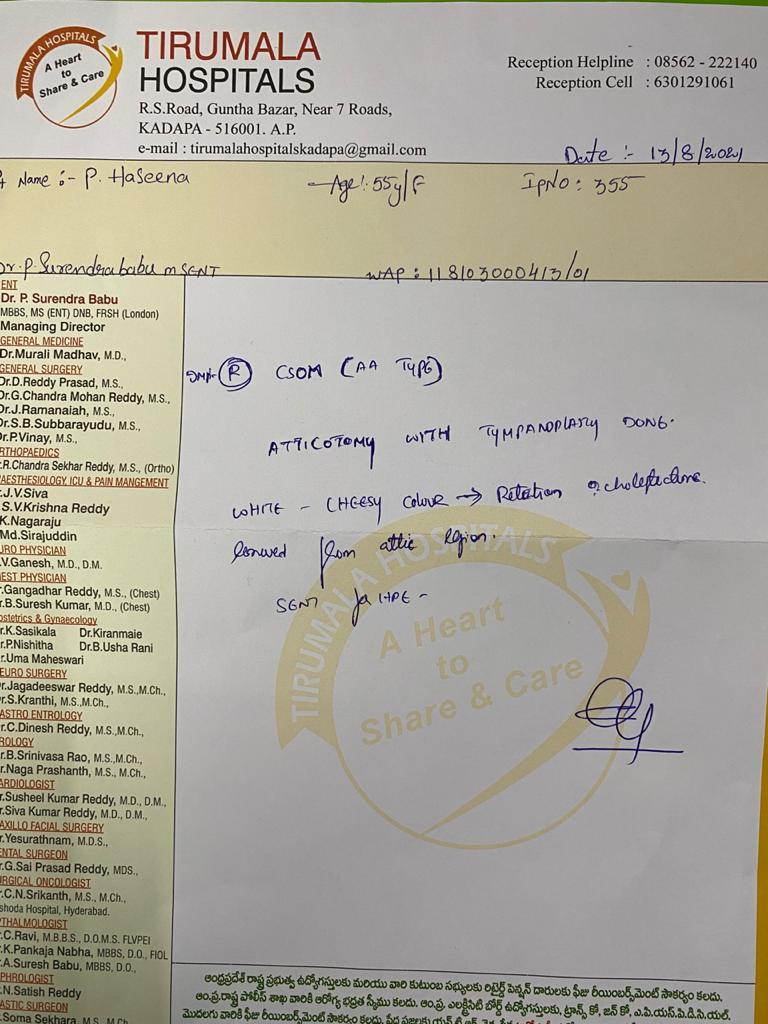 TIRUMALA HOSPITALS
A Heart
to
Share & Care
TIRUMALA
HOSPITALS
R.S.Road, Guntha Bazar, Near 7 Roads,
KADAPA - 516001. A.P.
e-mail : tirumalahospitalskadapa@gmail.com
Reception Helpline : 08562 - 222140
Reception Cell : 6301291061
Date :- 13/8/2021
Name :- P. Haseena Age: 55y/F IpNo: 355
Dr. P. Surendra babu MSENT WAP: 118103000413/01
ENT
Dr. P. Surendra Babu
MBBS, MS (ENT) DNB, FRSH (London)
Managing Director
GENERAL MEDICINE
Dr.Murali Madhav, M.D.,
GENERAL SURGERY
Dr.D.Reddy Prasad, M.S.,
Dr.G.Chandra Mohan Reddy, M.S.,
Dr.J.Ramanaiah, M.S.,
Dr.S.B.Subbarayudu, M.S.,
Dr.P.Vinay, M.S.,
RTHOPAEDICS
.R.Chandra Sekhar Reddy, M.S., (Ortho)
AESTHESIOLOGY, ICU & PAIN MANGEMENT
.J.V.Siva
.S.V.Krishna Reddy
K.Nagaraju
Md.Sirajuddin
URO PHYSICIAN
.V.Ganesh, M.D., D.M.
EST PHYSICIAN
.Gangadhar Reddy, M.S., (Chest)
r.B.Suresh Kumar, M.D., (Chest)
bstetrics & Gynaecology
r.K.Sasikala Dr.Kiranmaie
r.P.Nishitha Dr.B.Usha Rani
r.Uma Maheswari
EURO SURGERY
r.Jagadeeswar Reddy, M.S.,M.Ch.,
r.S.Kranthi, M.S.,M.Ch.,
ASTRO ENTROLOGY
r.C.Dinesh Reddy, M.S.,M.Ch.,
ROLOGY
r.B.Srinivasa Rao, M.S.,M.Ch.,
r.Naga Prashanth, M.S., M.Ch.,
ARDIOLOGIST
r.Susheel Kumar Reddy, M.D., D.M.,
r.Siva Kumar Reddy, M.D., D.M.,
AXILLO FACIAL SURGERY
r.Yesurathnam, M.D.S.,
ENTAL SURGEON
r.G.Sai Prasad Reddy, MDS.,
URGICAL ONCOLOGIST
r.C.N.Srikanth, M.S., M.Ch.,
shoda Hospital, Hyderabad.
THALMOLOGIST
.C.Ravi, M.B.B.S., D.O.M.S. FLVPEI
.K.Pankaja Nabha, MBBS, D.O., FIOL
.A.Suresh Babu, MBBS, D.O.,
PHROLOGIST
.N.Satish Reddy
ASTIC SURGEON
.Soma Sekhara, M.S., M.Ch
Imp:- R CSOM (AA TYPE)
ATTICOTOMY WITH TYMPANOPLASTY DONE.
WHITE - CHEESY COLOUR →
from attic region.
SENT for HPE -
TIRUMALA HOSPITALS
A Heart
to
Share & Care
ఆంధ్రప్రదేశ్ రాష్ట్ర ప్రభుత్వ ఉద్యోగస్తులకు మరియు వారి కుటుంబ సభ్యులకు రిటైర్డ్ పెన్షన్ దారులకు ఫీజు రీయింబర్స్‌మెంట్ సౌకర్యం కలదు.
ఆం.ప్ర.రాష్ట్ర పోలీస్ శాఖ వారికి ఆరోగ్య భద్రత స్కీము కలదు. ఆం.ప్ర. ఎలక్ట్రిసిటి బోర్డ్ ఉద్యోగస్తులకు, ట్రాన్స్ కో, జన్ కో, ఎ.పి.యస్.పి.డి.సి.యల్.
మొదలగు వారికి ఫీజు రీయింబర్స్‌మెంట్ సౌకర్యం కలదు.